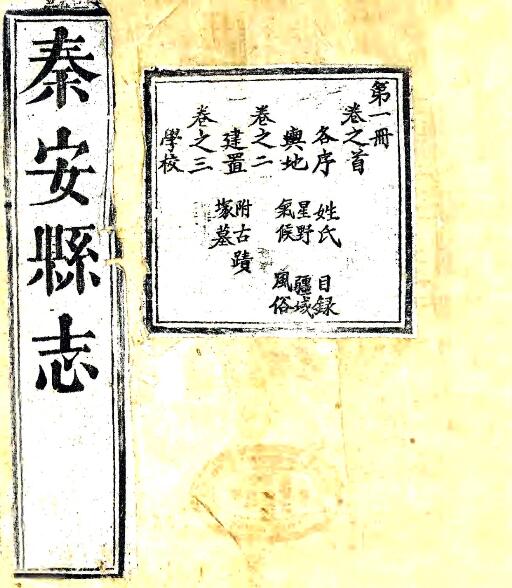 秦安縣志
第一冊
卷之首
各序 姓氏 目錄
輿地 星野 疆域
氣候 風俗
卷之二
建置 附古蹟
塚墓
卷之三
學校